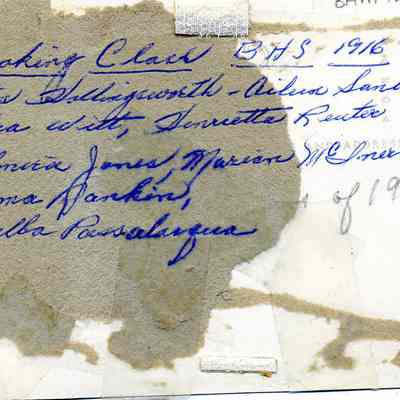 oking Class BHS 1916
Hollingsworth - Aileen San
Witt, Henrietta Reuter
Jones, Marian McIner
ma Rankin,
elba Passalaqua
of 19